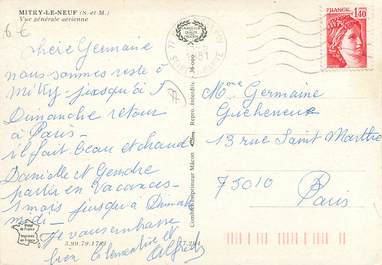 MITRY-LE-NEUF (S.-et-M.)
Vue générale aérienne
6 €
chère Germaine
nous sommes resté à
Mitry jusqu'à
Dimanche retour
à Paris -
il fait Beau et chaud
Danielle et Gendre
partis en Vacances -
1 mois jusqu'à
midi - Je vous embrasse
bien Clémentine et
Alfred
1,40
Mme Germaine
13 rue Saint Marthe
75010 Paris
Combier Imprimeur Mâcon
Repro. Interdite